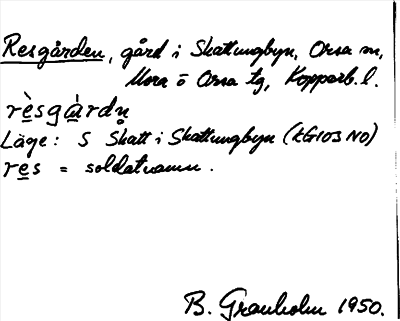 Resgården, gård i Skattungbyn, Orsa sn,
Mora o Orsa tg, Kopparb. l.
rèsgàrdn̥
Läge: S Skatt i Skattungbyn (tG103 NO)
res = soldatnamn.
B. Granholm 1950.